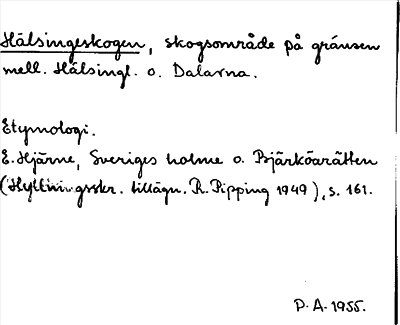 Hälsingeskogen, skogsområde på gränsen
mell. Hälsingl. o. Dalarna.
Etymologi.
E. Hjärne, Sveriges holme o. Bjärköarätten
(Hyllningsskr. tillägn. R. Pipping 1949), s. 161.
P. A. 1955.